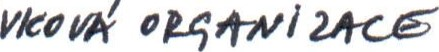 VKOVÁ ORGANIZACE